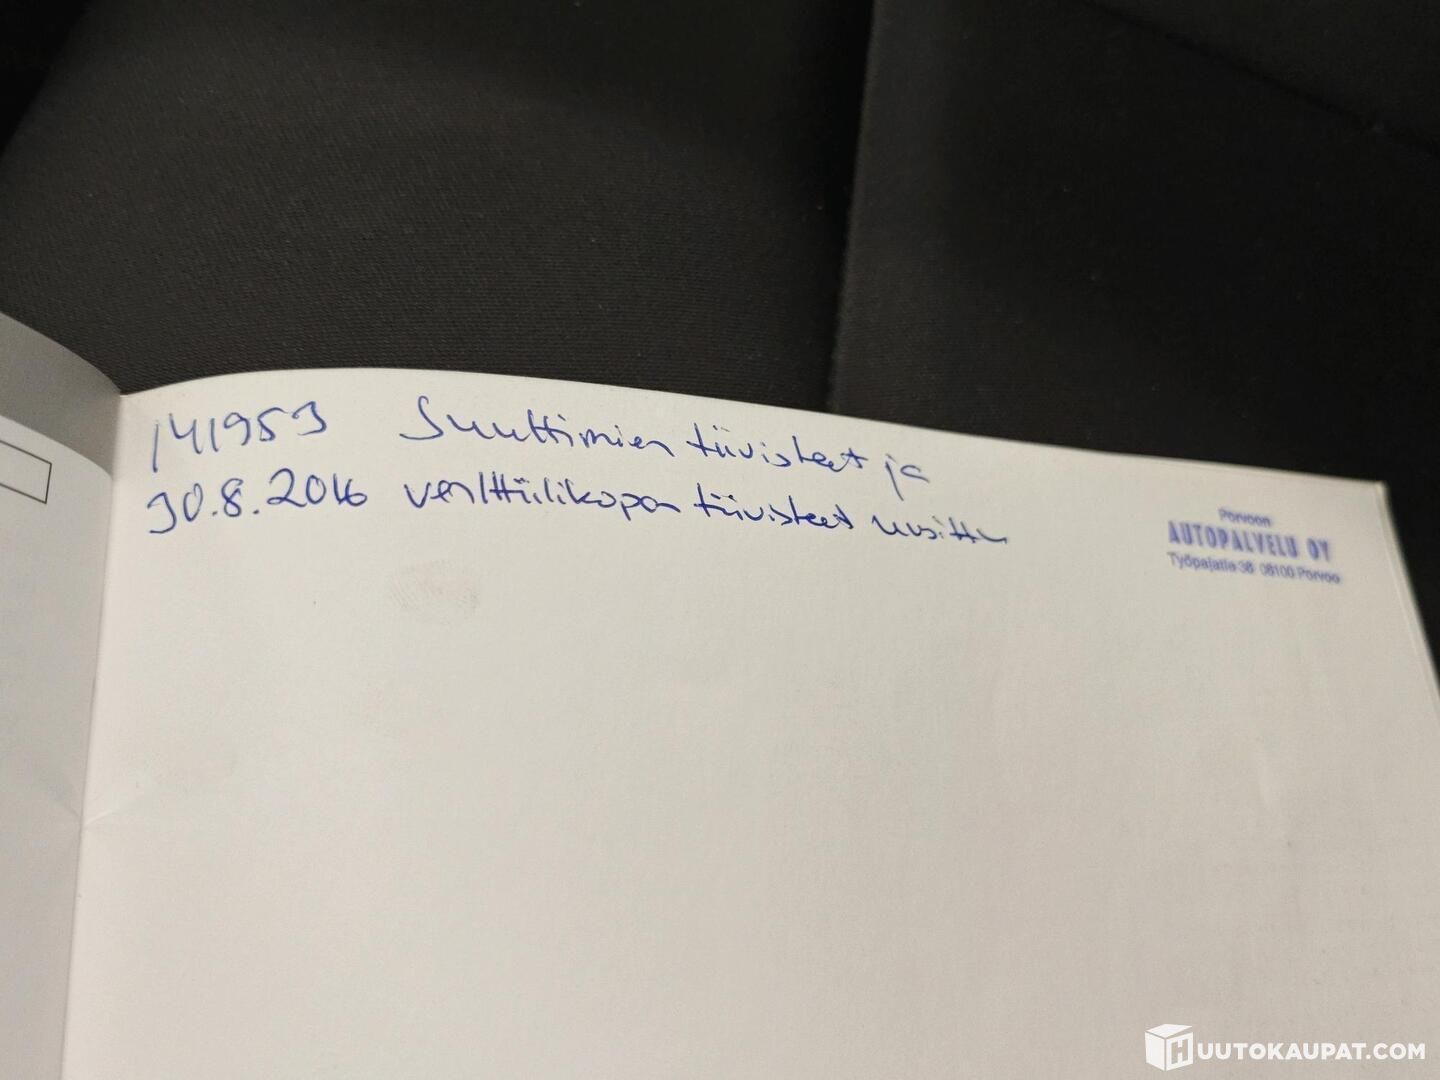 141953 Suuttimien tiivisteet ja
30.8.2016 venttiilikopan tiivisteet uusittu
Porvoon
AUTOPALVELU OY
Työpajatie 38 06100 Porvoo
HUUTOKAUPAT.COM